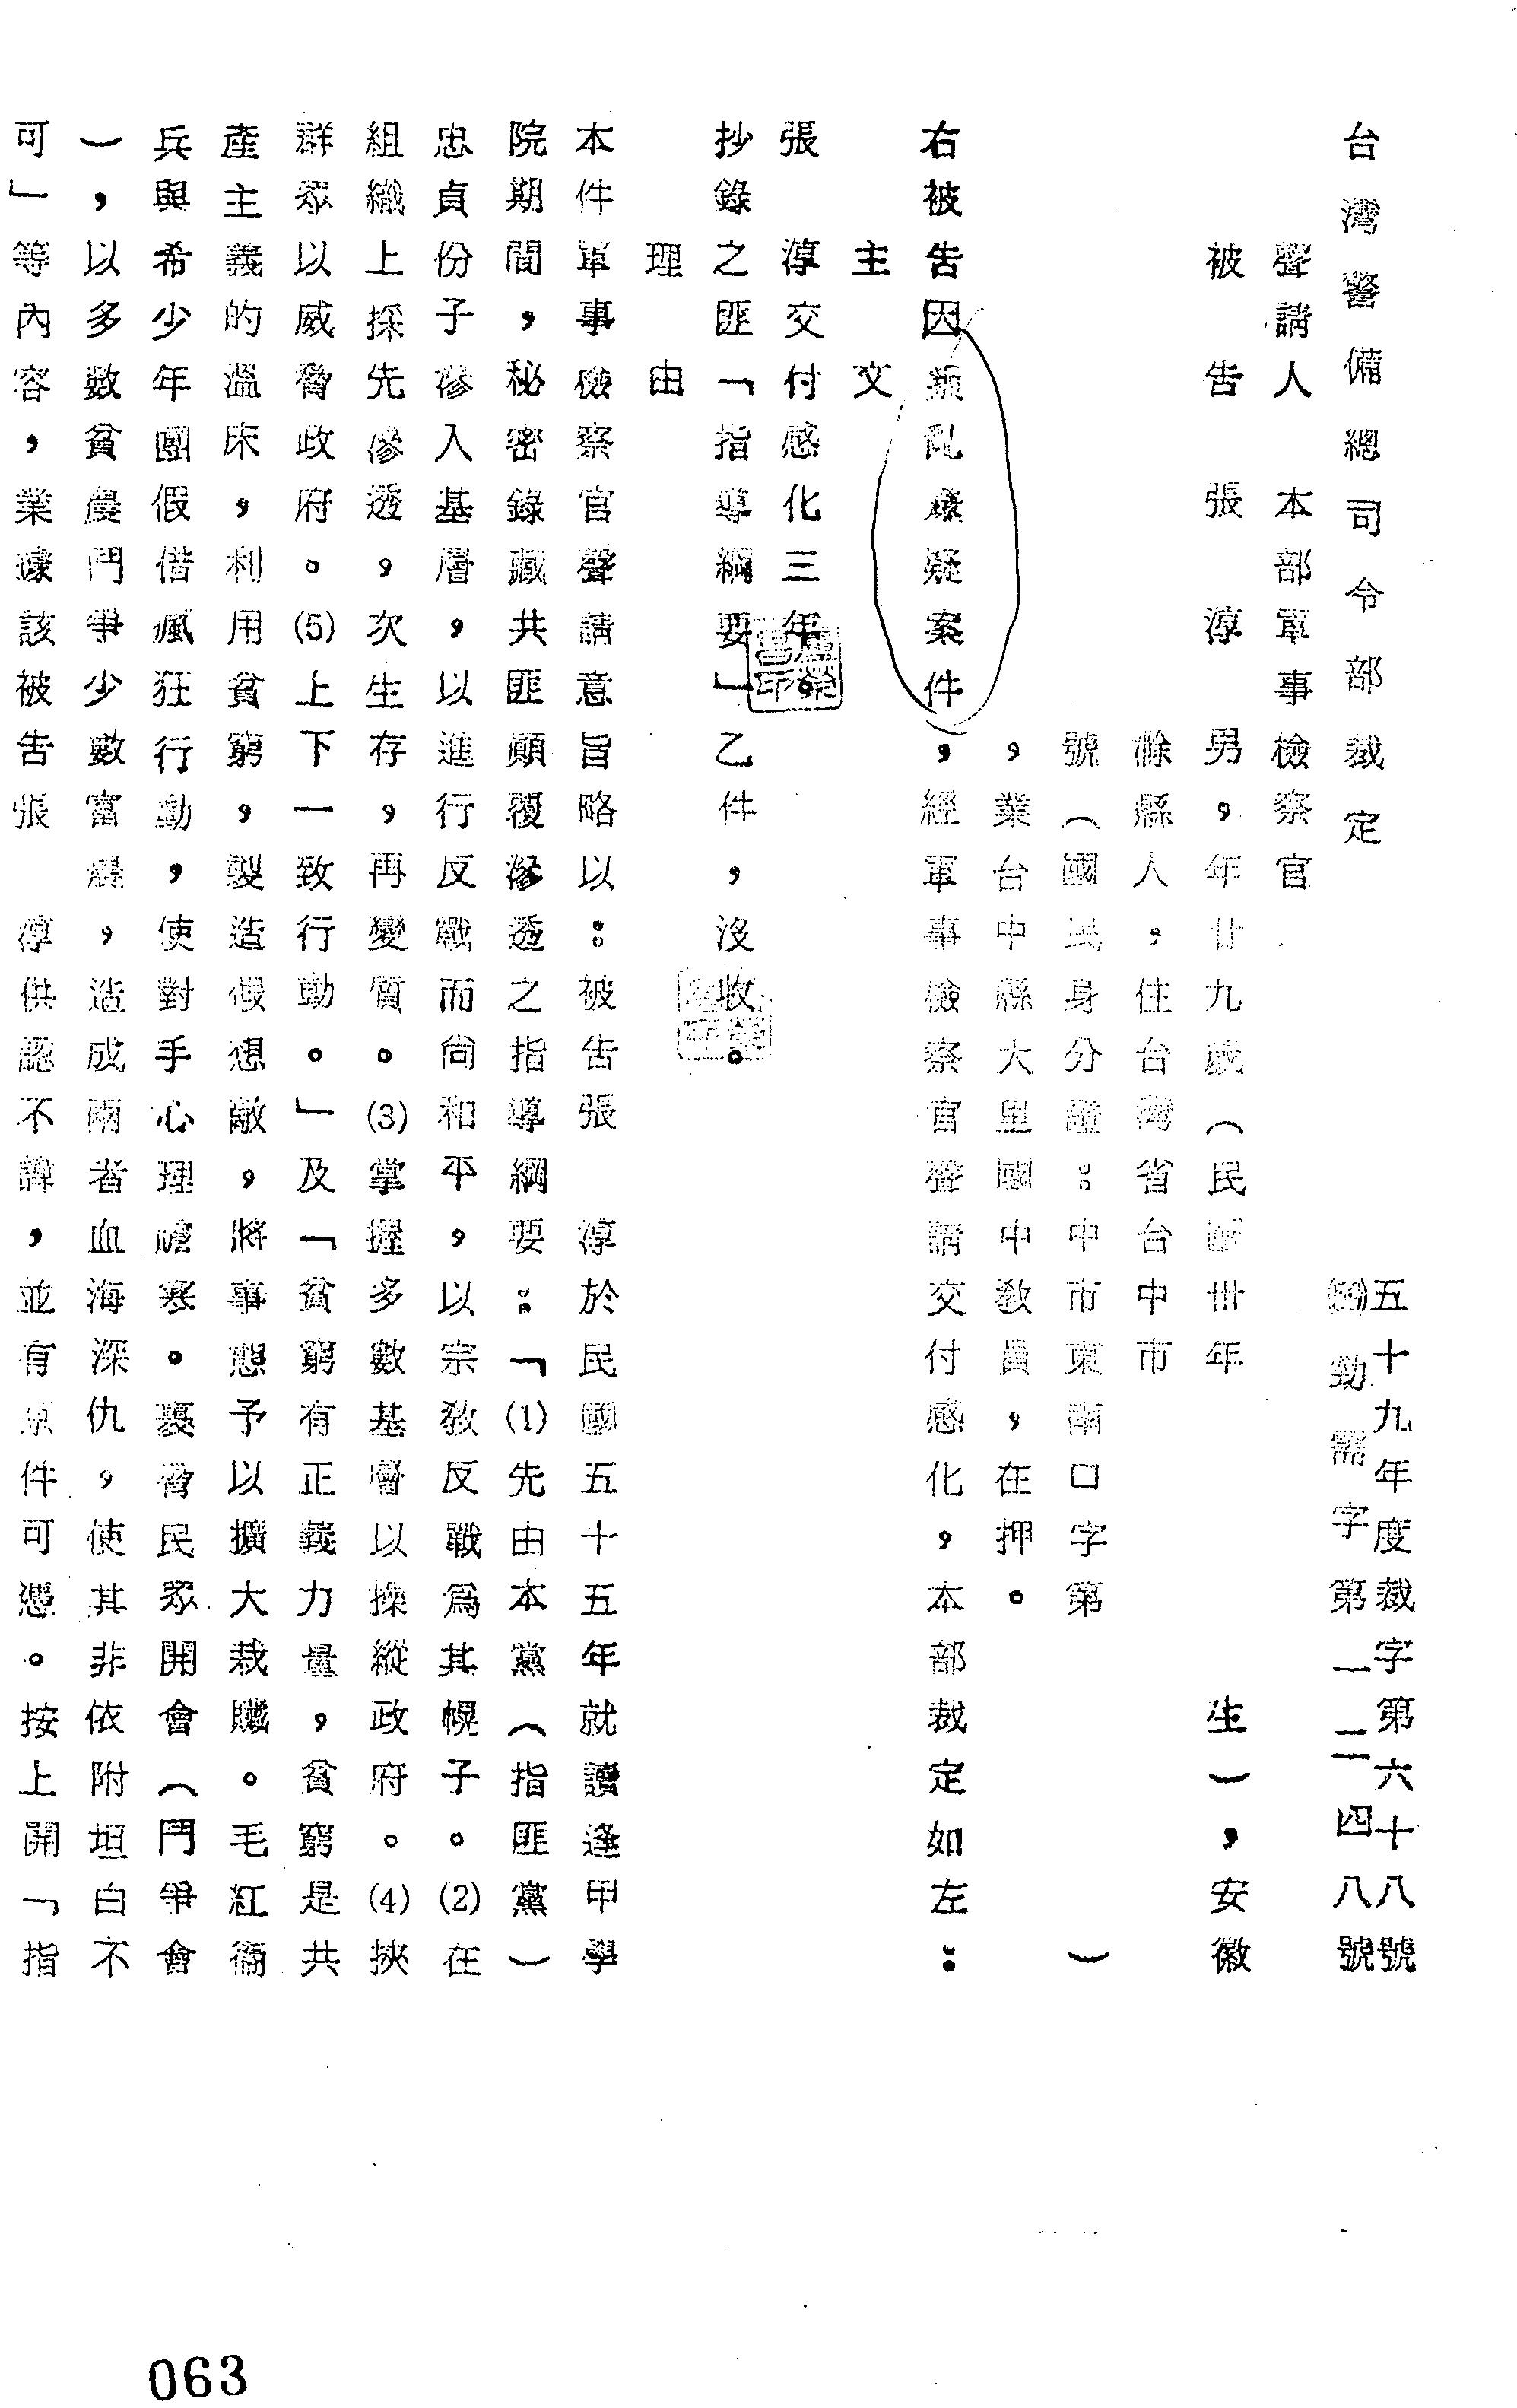 台灣警備總司令部裁定
五十九年度裁字第六十八號
(59)勁需字第一二四八號
聲請人 本部軍事檢察官
被告 張淳 男,年廿九歲(民國卅年 生),安徽
滁縣人,住台灣省台中市
號(國民身分證:中市東南口字第 )
,業台中縣大里國中教員,在押。
右被告因叛亂嫌疑案件,經軍事檢察官聲請交付感化,本部裁定如左:
主文
張 淳交付感化三年。
抄錄之匪「指導綱要」乙件,沒收。
理由
本件軍事檢察官聲請意旨略以:被告張 淳於民國五十五年就讀逢甲學
院期間,秘密錄藏共匪顛覆滲透之指導綱要:「(1)先由本黨(指匪黨)
忠貞份子滲入基層,以進行反戰而尚和平,以宗教反戰為其幌子。(2)在
組織上採先滲透,次生存,再變質。(3)掌握多數基層以操縱政府。(4)挾
群眾以威脅政府。(5)上下一致行動。」及「貧窮有正義力量,貧窮是共
產主義的溫床,利用貧窮,製造假想敵,將事態予以擴大栽贓。毛紅衞
兵與希少年團假借瘋狂行動,使對手心理膽寒。裹脅民眾開會(鬥爭會
),以多數貧農鬥爭少數富農,造成兩者血海深仇,使其非依附坦白不
可」等內容,業據該被告張 淳供認不諱,並有原件可憑。按上開「指
063